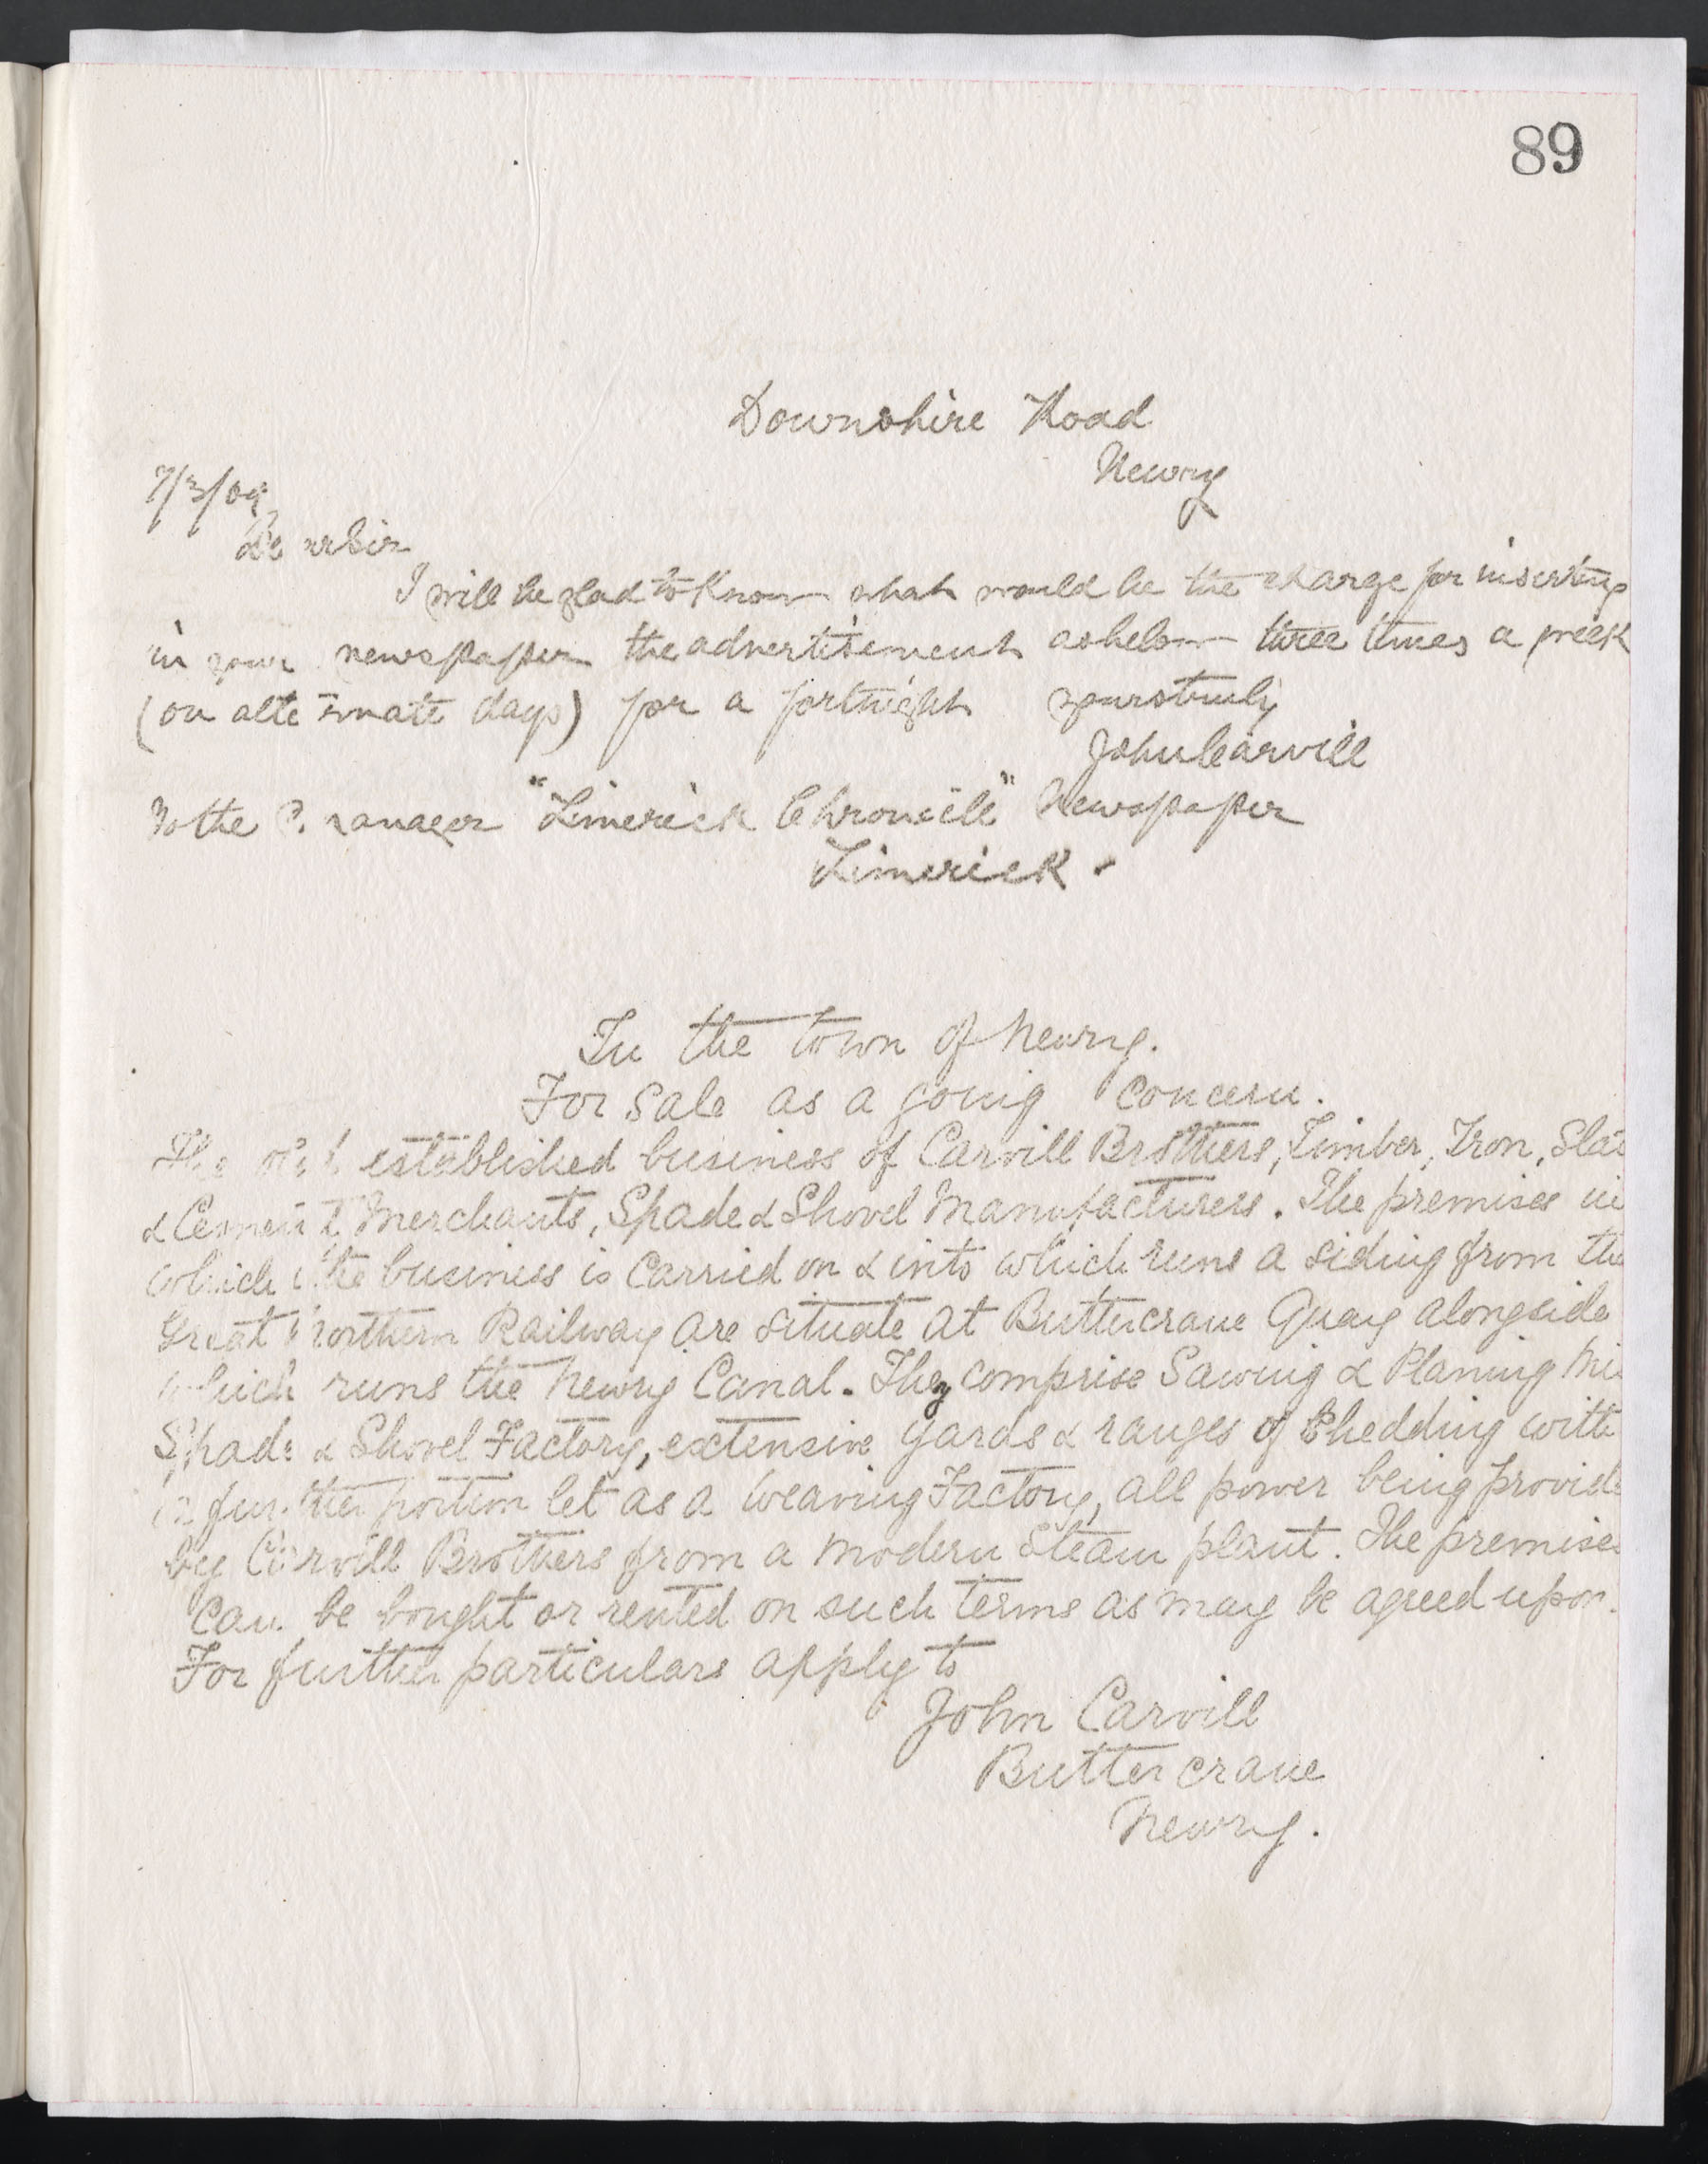 89
Downshire Road
Newry
7/3/09
Dear Sir
I will be glad to know what would be the charge for inserting
in your newspaper the advertisement as below three times a week
(on alternate days) for a fortnight yours truly
John Carvill
To the Manager "Limerick Chronicle" Newspaper
Limerick.
In the town of Newry.
For Sale as a going concern.
The old established business of Carvill Brothers, Timber, Iron, Slate
& Cement Merchants, Spade & Shovel Manufacturers. The premises in
which the business is carried on & into which runs a siding from the
Great Northern Railway are situate at Buttercrane Quay alongside
which runs the Newry Canal. They comprise Sawing & Planing Mi
Spade & Shovel Factory, extensive yards & ranges of Shedding with
a further portion let as a Weaving Factory, all power being provide
by Carvill Brothers from a modern Steam plant. The premises
can be bought or rented on such terms as may be agreed upon.
For further particulars apply to
John Carvill
Buttercrane
Newry.